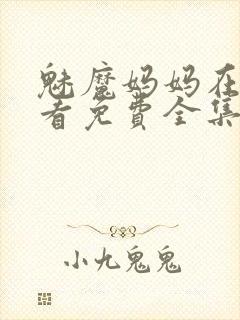 魅魔妈妈在
看免费全集
小九鬼鬼